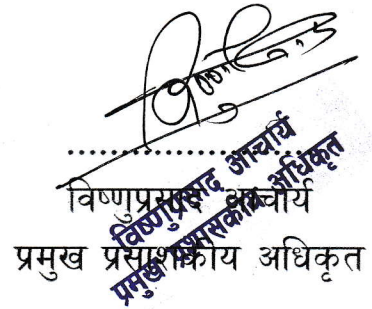 विष्णुप्रसाद आचार्य
प्रमुख प्रसाशकीय अधिकृत
विष्णुप्रसाद आचार्य
प्रमुख प्रशासकीय अधिकृत